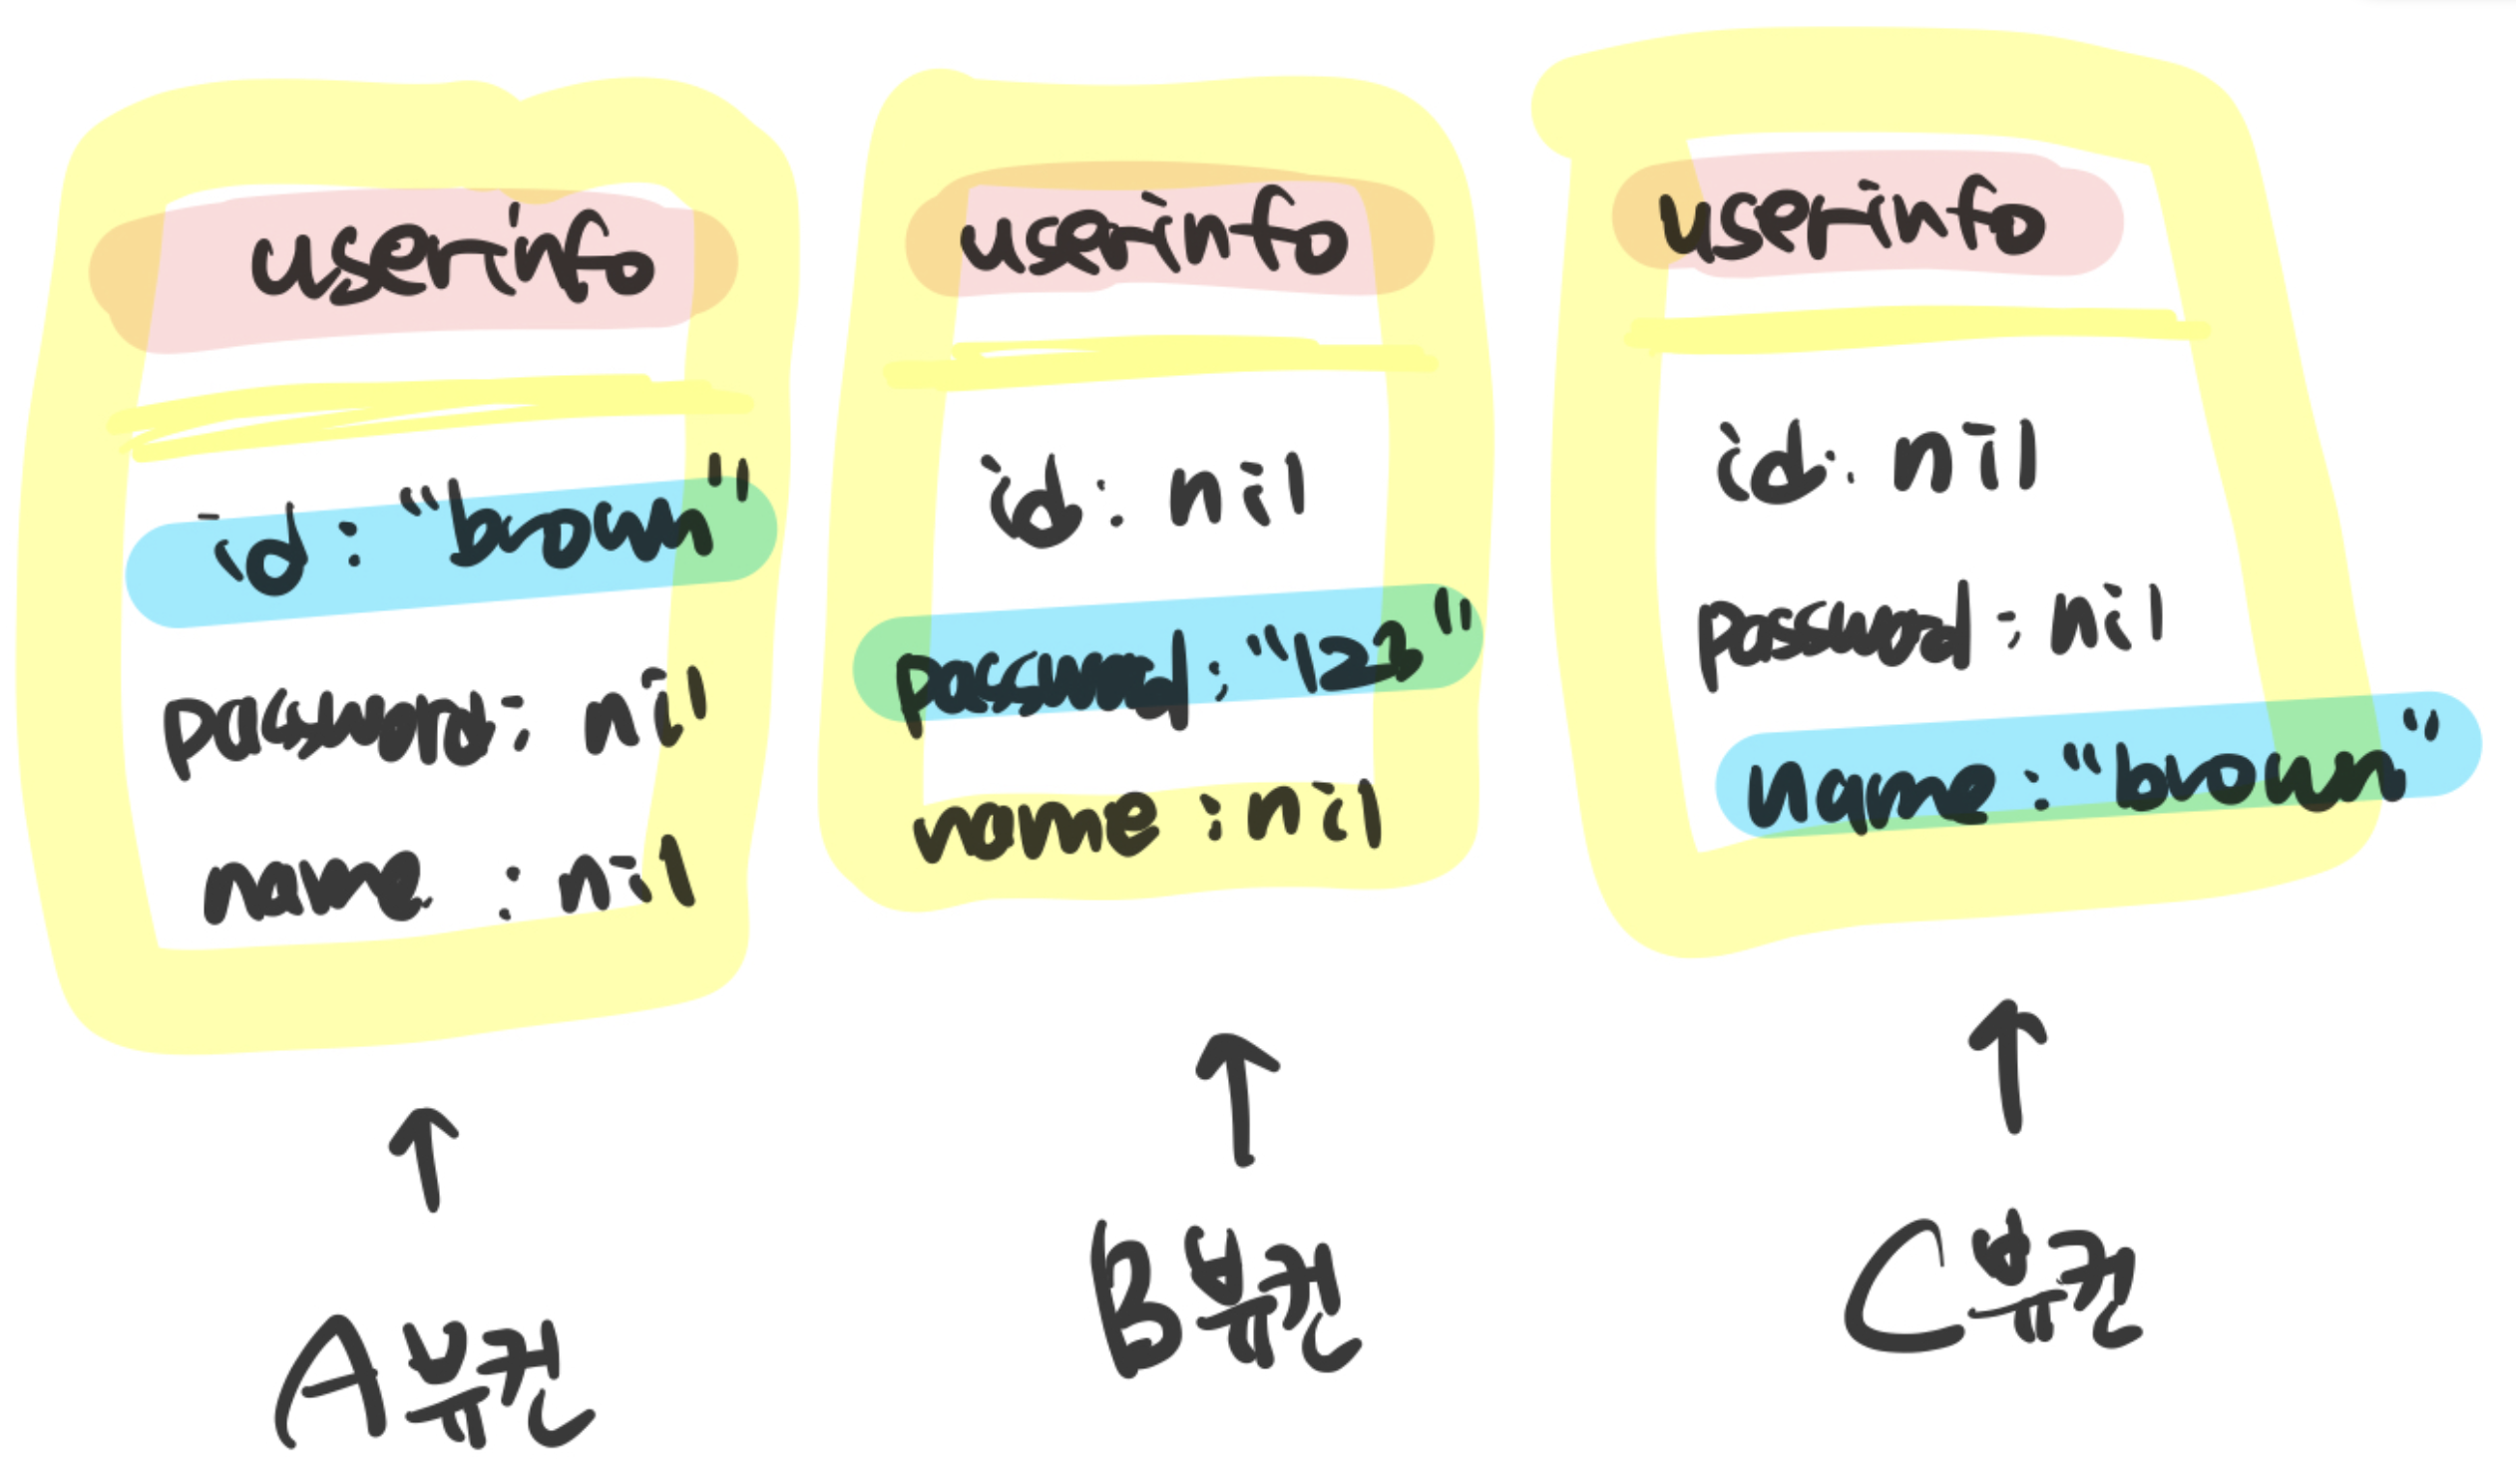 userinfo
id: "brown"
password: nil
name: nil
A뷰컨
userinfo
id: nil
password: "123"
name: nil
B뷰컨
userinfo
id: nil
password: nil
name: "brown"
C뷰컨